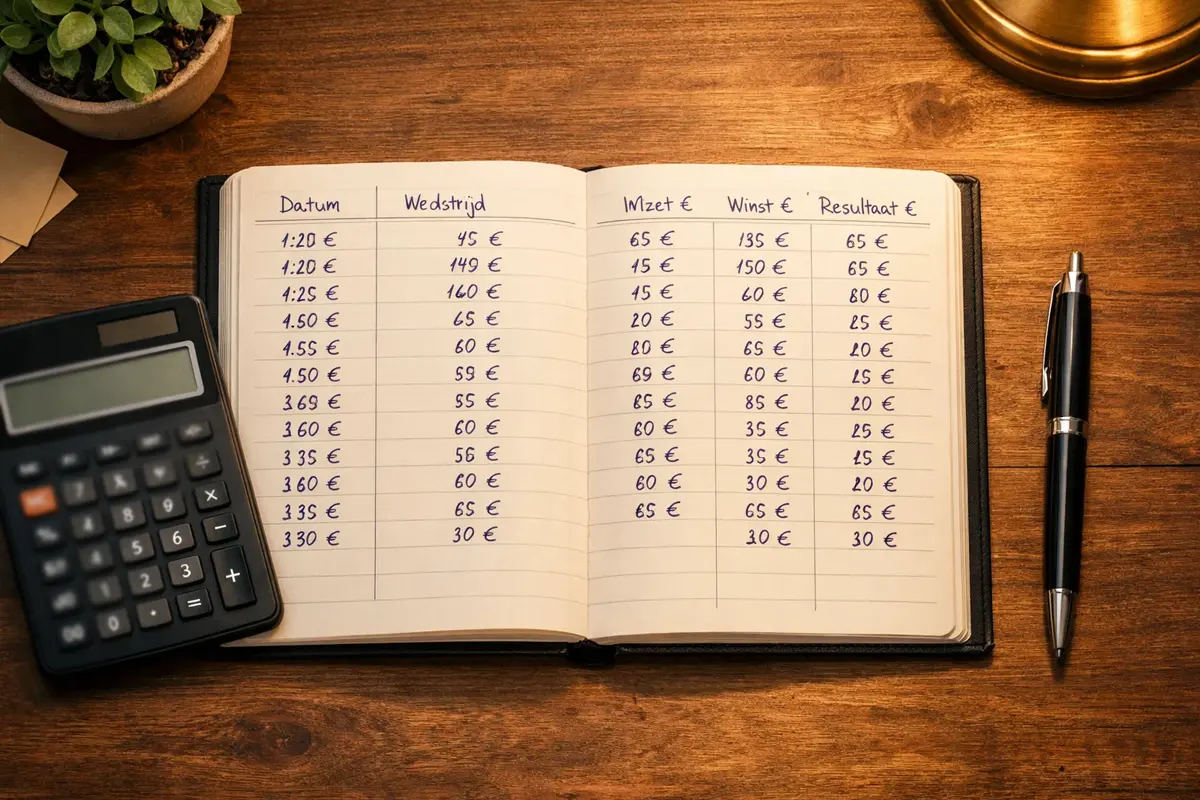 Datum Wedstrijd IMzet € Winst € Resultaat €
1:20 € 45 € 65 € 135 € 65 €
1:20 € 149 € 15 € 150 € 65 €
1:25 € 160 € 15 € 60 € 80 €
1.50 € 65 € 20 € 55 € 25 €
1.55 € 60 € 80 € 65 € 20 €
4.50 € 59 € 69 € 60 € 25 €
369 € 55 € 85 € 85 € 20 €
360 € 60 € 60 € 35 € 25 €
335 € 56 € 65 € 35 € 15 €
360 € 60 € 60 € 30 € 20 €
335 € 65 € 65 € 65 € 65 €
330 € 30 € 30 € 30 €
÷
7 8 9 ×
4 5 6 −
1 2 3 +
0 . =